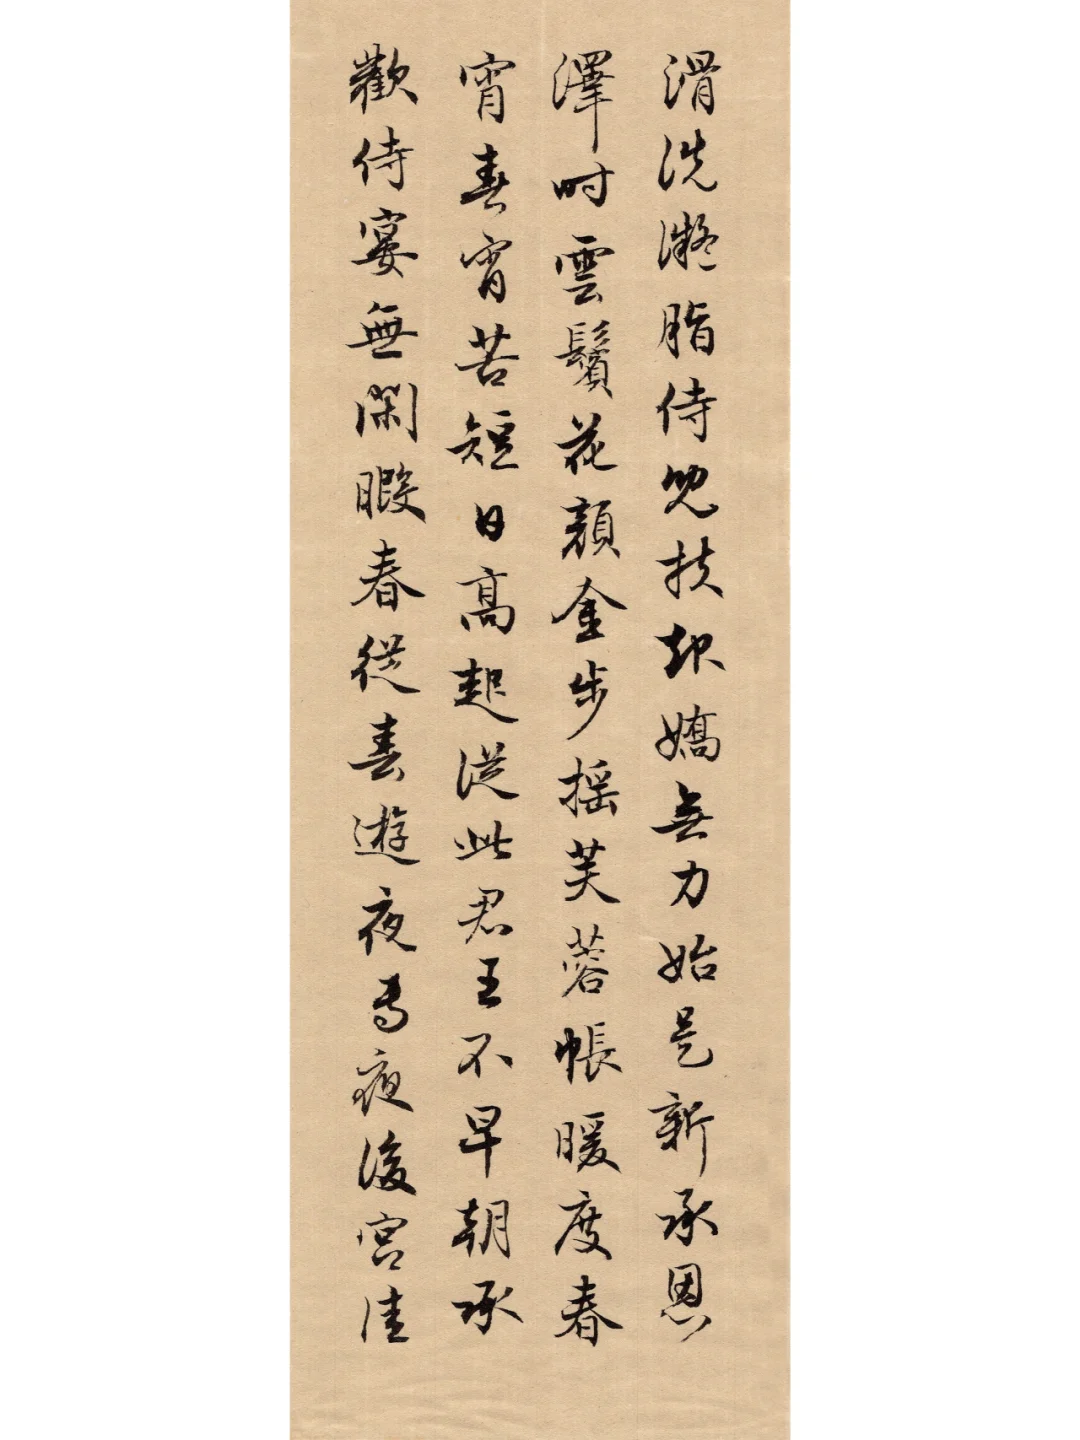 滑洗凝脂侍兒扶起嬌無力始是新承恩
澤時雲鬢花顏金步搖芙蓉帳暖度春
宵春宵苦短日高起從此君王不早朝承
歡侍宴無閑暇春從春遊夜專夜後宮佳